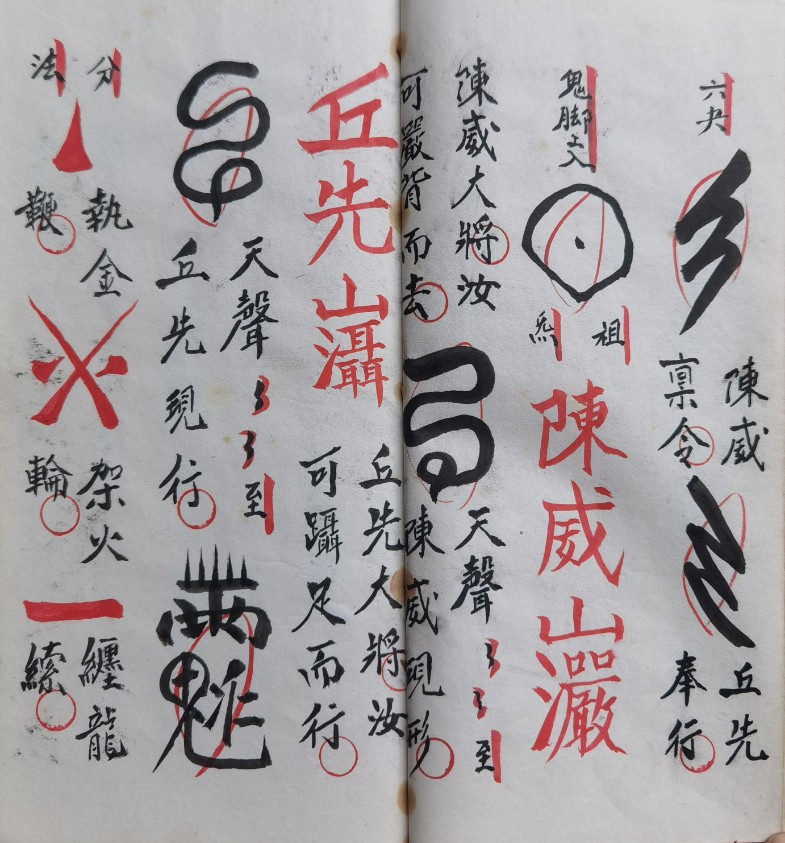 六
陳威
禀令
丘先
奉行
鬼脚上入
祖
炁
陳威
山
陳威大將汝
可嚴背而去
天聲
至
陳威現形
丘先
山
丘先大將汝
可躡足而行
天聲
至
丘先現行
分
法
執金
鞭
架火
輪
纏龍